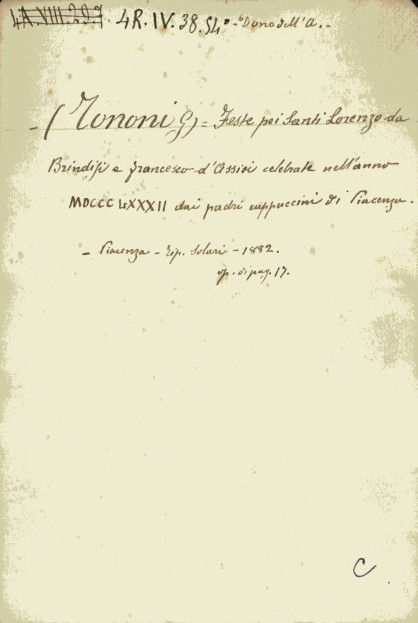 4A.VIII.297 4R.IV.38.54° - Dono dell'A. -
- (Tononi G) = Feste pei Santi Lorenzo da
Brindisi e Francesco d'Assisi celebrate nell'anno
MDCCCLXXXII dai padri cappuccini di Piacenza.
- Piacenza - Tip. Solari - 1882.
op. di pag. 17.
C